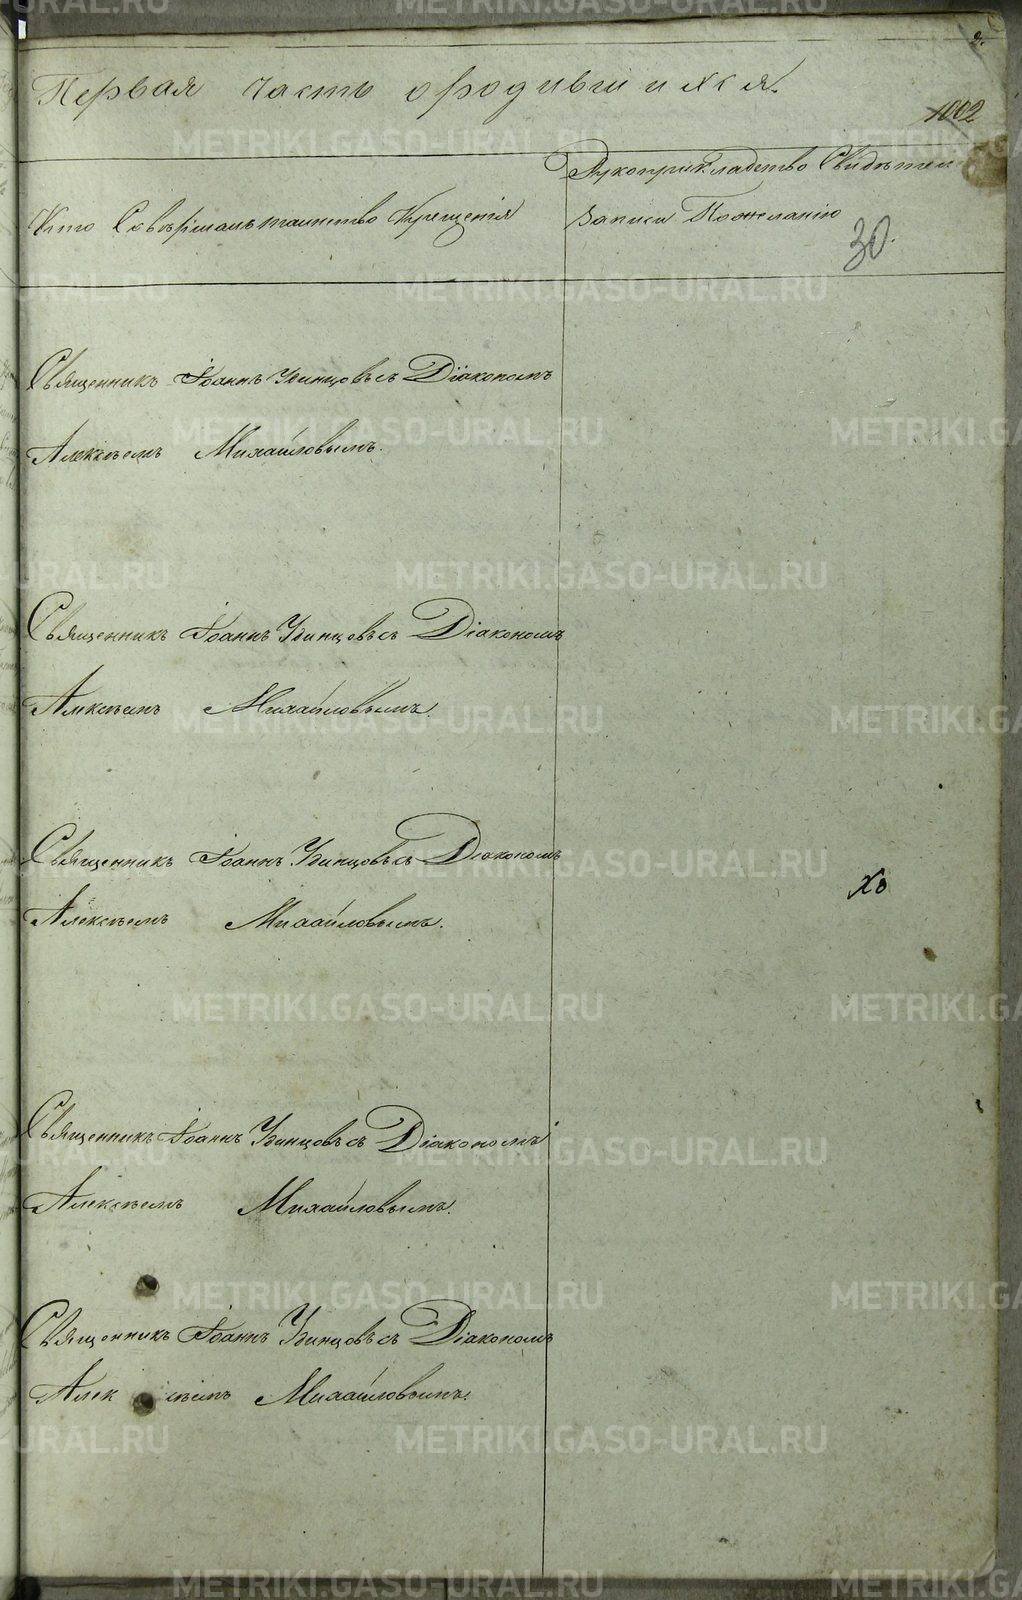 2.
Первая часть о родившихся.
1002
Рукоприкладство Свидетел
Кто Совершалъ таинство Крещенія
записи По желанію
30.
Священникъ Іоаннъ Удинцовъ съ Діакономъ
Алексѣемъ Михайловымъ.
Священникъ Іоаннъ Удинцовъ съ Діакономъ
Алексѣемъ Михайловымъ.
Священникъ Іоаннъ Удинцовъ съ Діакономъ
Алексѣемъ Михайловымъ.
Священникъ Іоаннъ Удинцовъ съ Діакономъ
Алексѣемъ Михайловымъ.
Священникъ Іоаннъ Удинцовъ съ Діакономъ
Алексѣемъ Михайловымъ.
METRIKI.GASO-URAL.RU